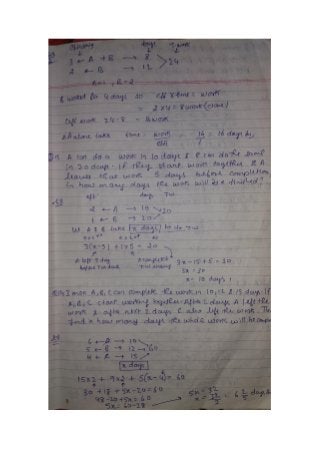 days
3 ← A + B → 8
2 ← B → 12
24
B worked for 4 days so eff x time = work
= 2 x 4 = 8 work (done)
Left work 24 - 8 = 16 work
A alone take time = work
eff
= 16 days
A can do a work in 10 days & B can do the same
in 20 days. if they start work together & A
leaves the work 5 days before completion
in how many days the work will be finished?
eff days TW
2 ← A → 10
1 ← B → 20
20
Let A & B take x days to do TW
+ 1 x 5 = 20
A left 5 day
before TW done
3x - 15 + 5 = 30
3x = 30
x = 10 days
3 men A, B, C can complete the work in 10, 12 & 15 days. If
A, B, C start working together. After 2 days A left the
work & after next 2 days C also left the work. Then
find x how many days the whole work will be
6 ← A → 10
5 ← B → 12 → 60
4 ← A → 15
x days
15x2 + 9x2 + 5(x-4) = 60
30 + 18 + 5x - 20 = 60
48 - 20 + 5x = 60
5x = 60 - 28
5x = 32
x = 32/5 = 6 2/5 days